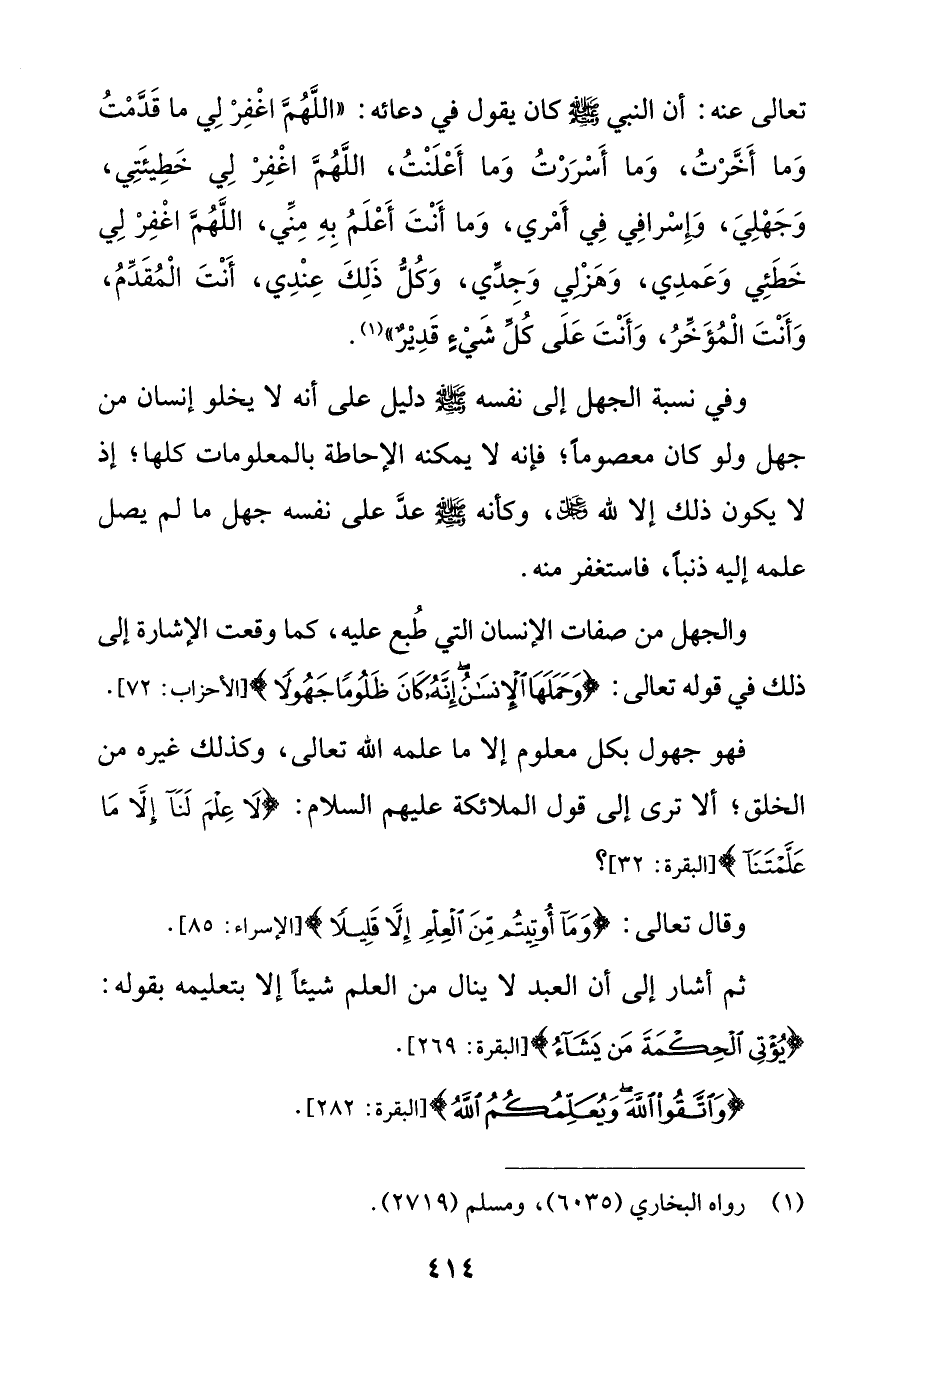 تعالى عنه: أن النبي ﷺ كان يقول في دعائه: «اللَّهُمَّ اغْفِرْ لِي ما قَدَّمْتُ
وَما أَخَّرْتُ، وَما أَسْرَرْتُ وَما أَعْلَنْتُ، اللَّهُمَّ اغْفِرْ لِي خَطِيئَتِي،
وَجَهْلِيَ، وَإِسْرافِي فِي أَمْرِي، وَما أَنْتَ أَعْلَمُ بِهِ مِنِّي، اللَّهُمَّ اغْفِرْ لِي
خَطَئِي وَعَمدِي، وَهَزْلِي وَجِدِّي، وَكُلُّ ذَلِكَ عِنْدِي، أَنْتَ الْمُقَدِّمُ،
وَأَنْتَ الْمُؤَخِّرُ، وَأَنْتَ عَلَى كُلِّ شَيْءٍ قَدِيْرٌ»(١).
وفي نسبة الجهل إلى نفسه ﷺ دليل على أنه لا يخلو إنسان من
جهل ولو كان معصوماً؛ فإنه لا يمكنه الإحاطة بالمعلومات كلها؛ إذ
لا يكون ذلك إلا لله ﷻ، وكأنه ﷺ عدَّ على نفسه جهل ما لم يصل
علمه إليه ذنباً، فاستغفر منه.
والجهل من صفات الإنسان التي طُبع عليه، كما وقعت الإشارة إلى
ذلك في قوله تعالى: ﴿وَحَمَلَهَا ٱلْإِنسَٰنُ ۖ إِنَّهُۥ كَانَ ظَلُومًا جَهُولًا﴾[الأحزاب: ٧٢].
فهو جهول بكل معلوم إلا ما علمه الله تعالى، وكذلك غيره من
الخلق؛ ألا ترى إلى قول الملائكة عليهم السلام: ﴿لَا عِلْمَ لَنَآ إِلَّا مَا
عَلَّمْتَنَآ﴾[البقرة: ٣٢]؟
وقال تعالى: ﴿وَمَآ أُوتِيتُم مِّنَ ٱلْعِلْمِ إِلَّا قَلِيلًا﴾[الإسراء: ٨٥].
ثم أشار إلى أن العبد لا ينال من العلم شيئاً إلا بتعليمه بقوله:
﴿يُؤْتِي ٱلْحِكْمَةَ مَن يَشَآءُ﴾[البقرة: ٢٦٩].
﴿وَٱتَّقُوا۟ ٱللَّهَ ۖ وَيُعَلِّمُكُمُ ٱللَّهُ﴾[البقرة: ٢٨٢].
(١) رواه البخاري (٦٠٣٥)، ومسلم (٢٧١٩).
٤١٤